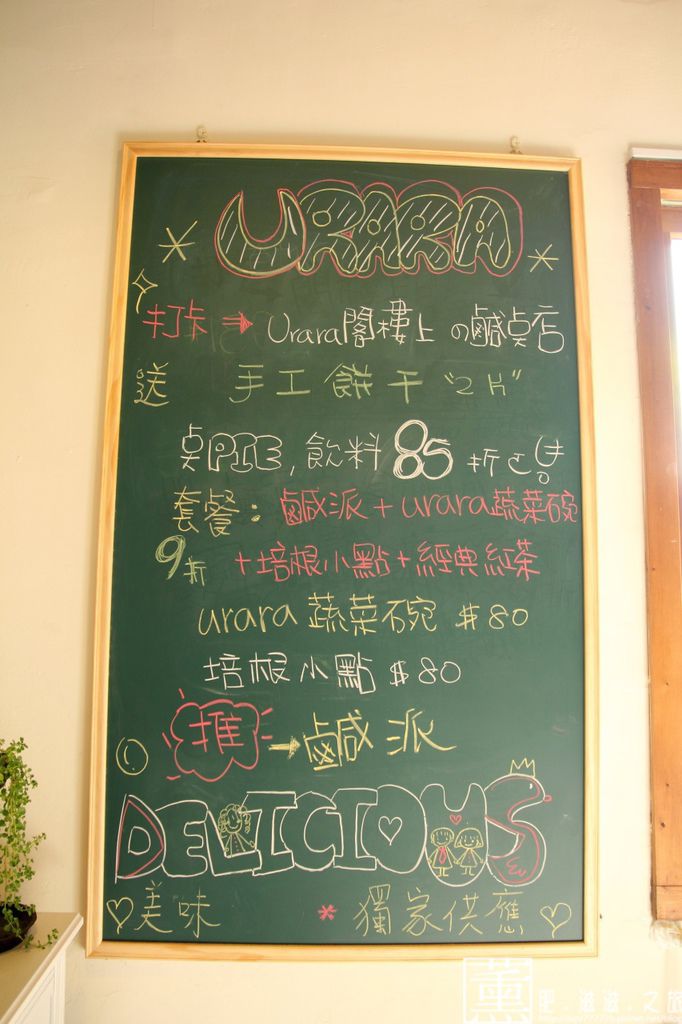 URARA
打卡 ⇒ Urara閣樓上の鹹桌店
送 手工餅干 "2片"
桌PIE, 飲料 85折
套餐: 鹹派 + urara蔬菜碗
9折 +培根小點+經典紅茶
urara 蔬菜碗 $80
培根小點 $80
推 → 鹹派
DELICIOUS
♡美味 * 獨家供應♡
薰 肥.滋滋.之旅